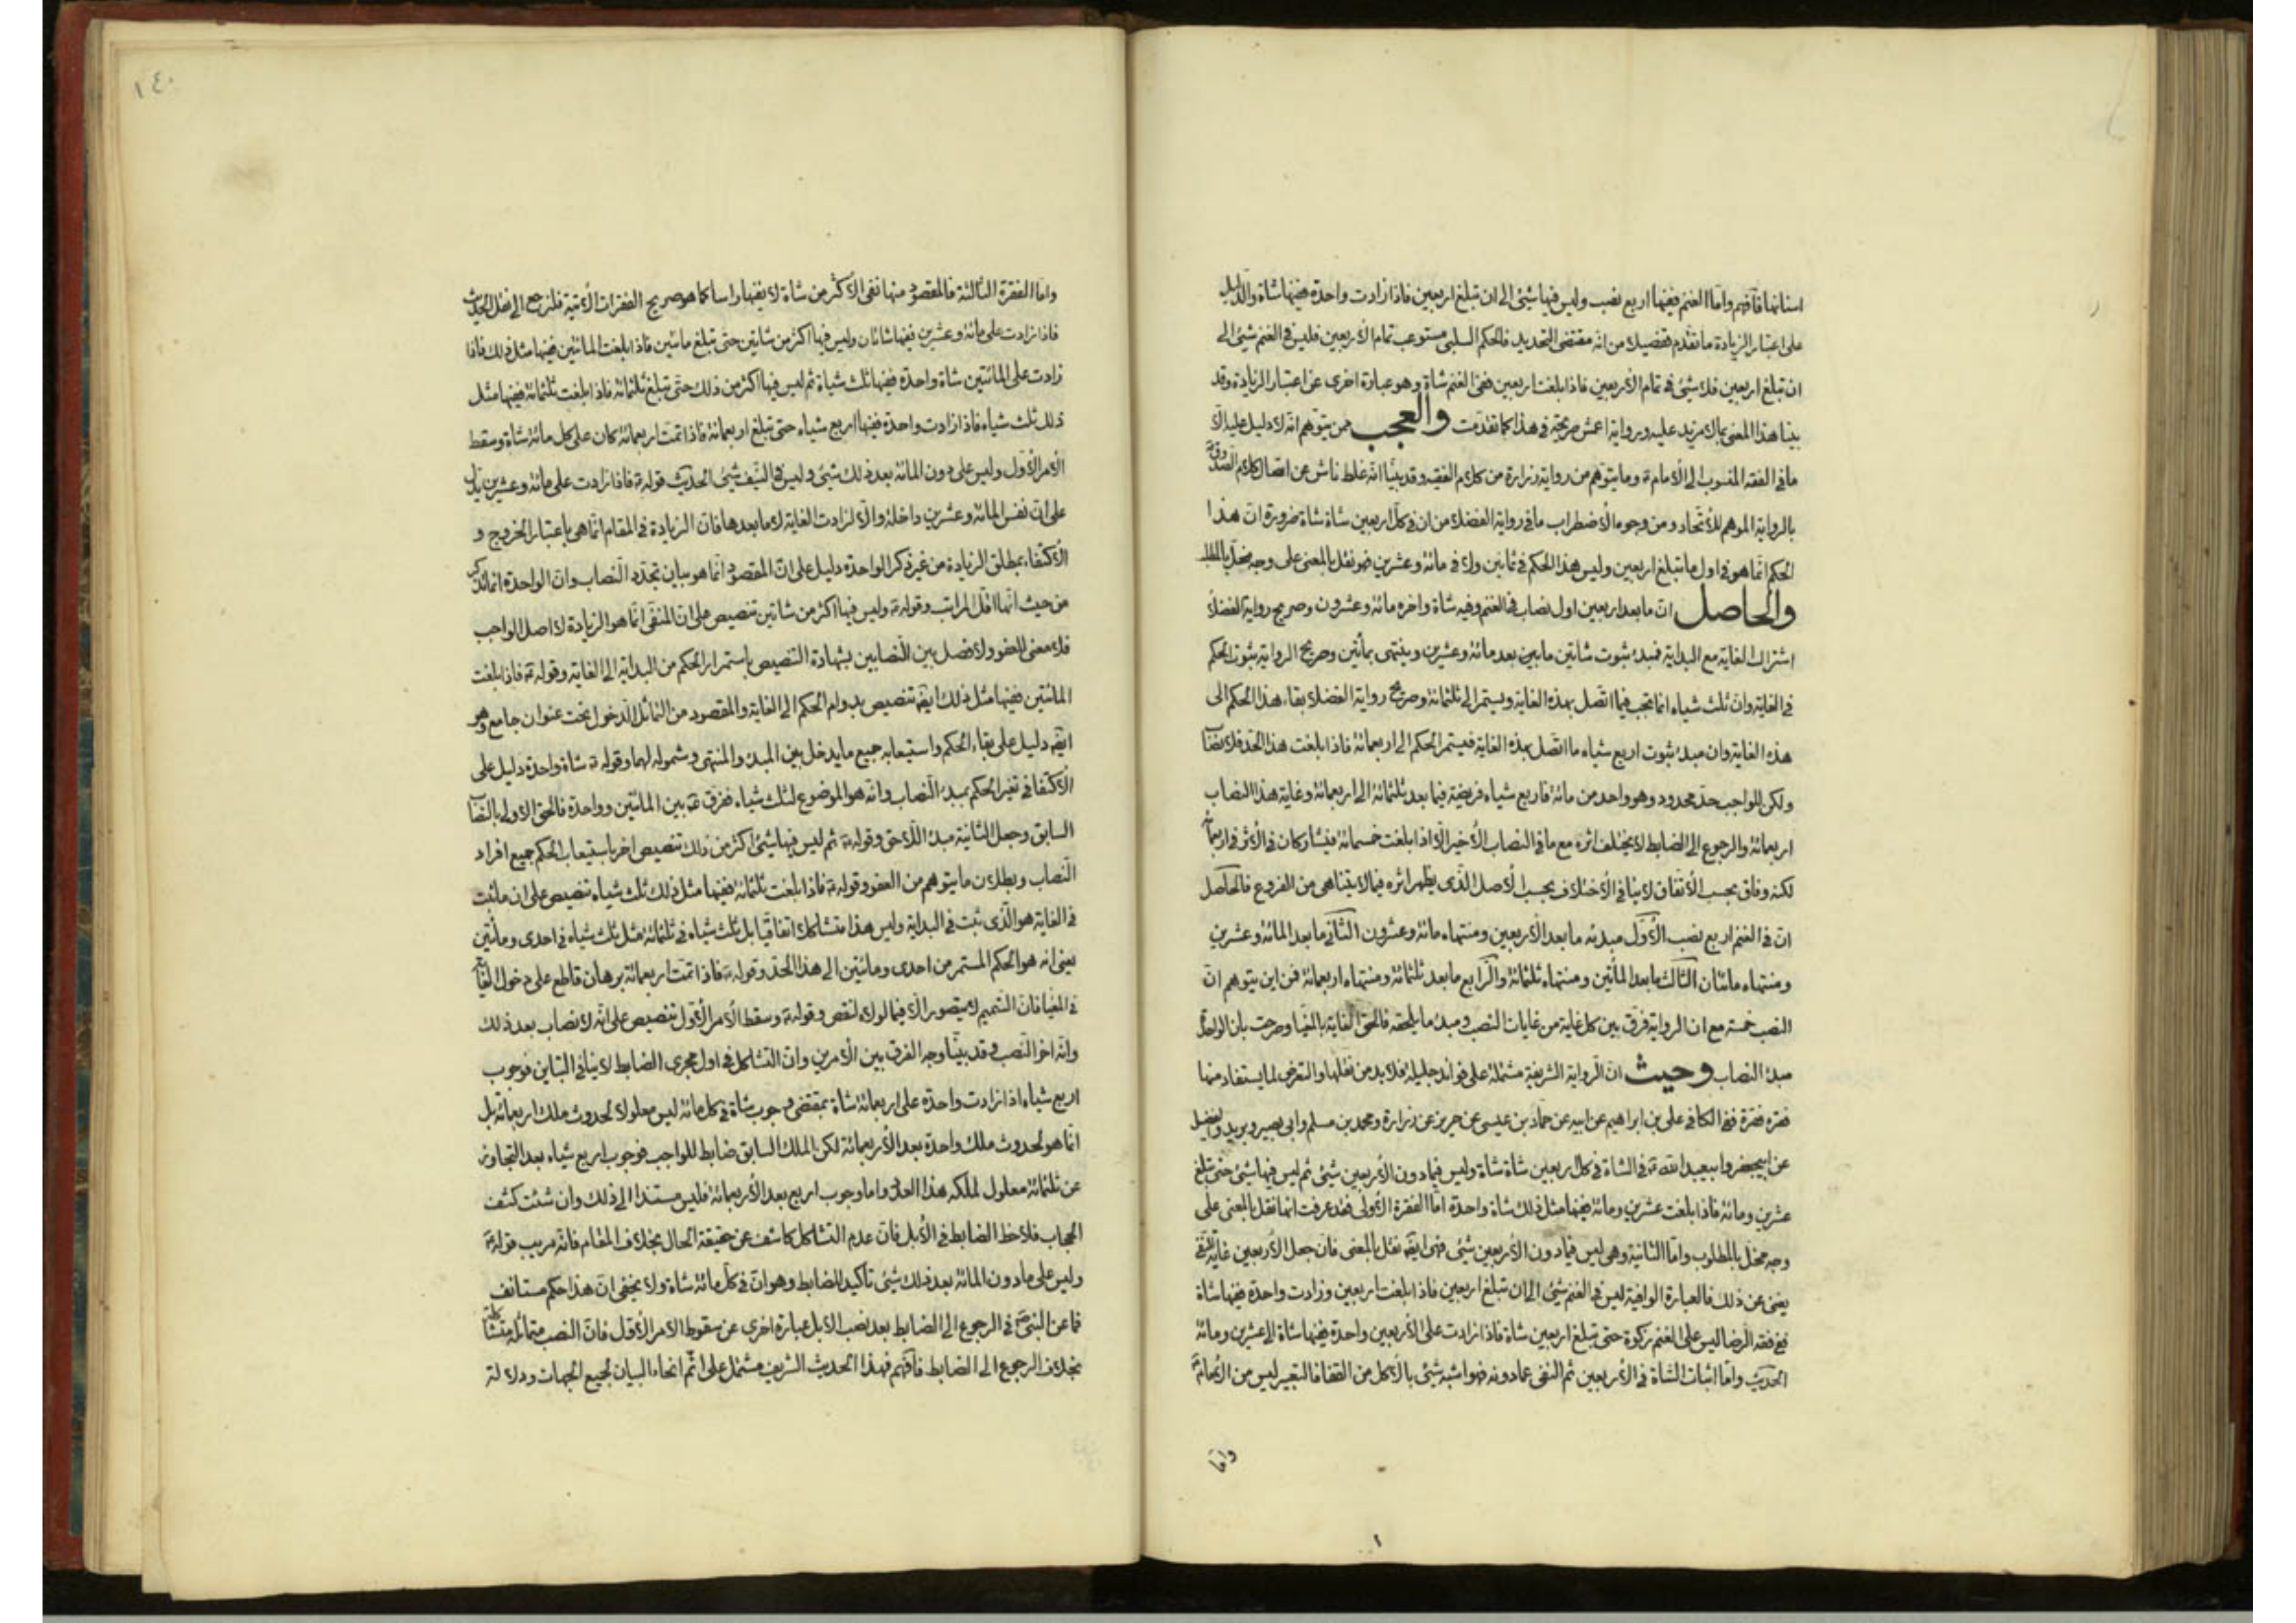 اسنانها فافهم واما الغنم ففيها اربع نصب وليس فيها شيئ الى ان تبلغ اربعين فاذا زادت واحدة ففيها شاة والدليل
على اعتبار الزيادة ما تقدم تفصيلا من انه مقتضى التحديد فالحكم السلبى مستوعب تمام الاربعين فليس فى الغنم شيئ الى
ان تبلغ اربعين فلا شيئ فى تمام الاربعين فاذا بلغت اربعين ففى الغنم شاة وهو عبارة اخرى عن اعتبار الزيادة وقد
بينا هذا المعنى بما لا مزيد عليه ورواية اعمش صريحة فى هذا كما تقدمت والعجب من يتوهم انه لا دليل عليه الا
ما فى الفقه المنسوب الى الامام ع وما يتوهم من رواية زرارة من كلام الفقيه وقد بينا انه غلط ناش عن اتصال كلام الصدوق
بالرواية الموهم للاتحاد ومن وجوه الاضطراب ما فى رواية الفضلاء من ان فى كل اربعين شاة شاة ضرورة ان هذا
الحكم انما هو فى اول ما تبلغ اربعين وليس هذا الحكم فى ثمانين ولا فى مائة وعشرين فهو نقل بالمعنى على وجه مخل بالمط
والحاصل ان ما بعد اربعين اول نصاب فى الغنم وفيه شاة واخره مائة وعشرون وصريح رواية الفضلاء
اشتراك الغاية مع البداية فمبدء ثبوت شاتين ما بين بعد مائة وعشرين وينتهى بمأتين وصريح الرواية ثبوت الحكم
فى الغاية وان ثلث شياه انما تجب فيما اتصل بهذه الغاية ويستمر الى ثلثمائة وصريح رواية الفضلاء بقاء هذا الحكم الى
هذه الغاية وان مبدء ثبوت اربع شياه ما اتصل بهذه الغاية فيستمر الحكم الى اربعمائة فاذا بلغت هذا الحد فلا نصاب
ولكن للواجب حد محدود وهو واحد من مائة فاربع شياه فريضة فيما بعد ثلثمائة الى اربعمائة وغاية هذا النصاب
اربعمائة والرجوع الى الضابط لا يختلف اثره مع ما فى النصاب الأخير الا اذا بلغت خمسمائة فيتشاركان فى الأثر فى اربعمائة
لكنه وفاق بحسب الأتفاق لا ينافى الأختلاف بحسب الأصل الذى يظهر اثره فيما لا يتناهى من الفروع فالحاصل
ان فى الغنم اربع نصب الأول مبدئه ما بعد الأربعين ومنتهاه مائة وعشرون الثانى ما بعد المائة وعشرين
ومنتهاه مائتان الثالث ما بعد المأتين ومنتهاه ثلثمائة والرابع ما بعد ثلثمائة ومنتهاه اربعمائة فمن اين يتوهم ان
النصب خمسة مع ان الرواية فرق بين كل غاية من غايات النصب ومبدء ما يلحقه فالحق الغاية بالمغيا وصرحت بان الواحدة
مبدء النصاب وحيث ان الرواية الشريفة مشتملة على فوائد جليلة فلا بد من نقلها والتعرض لما يستفاد منها
فقرة فقرة ففى الكافى على بن ابراهيم عن ابيه عن حماد بن عيسى عن حريز عن زرارة ومحمد بن مسلم وابى بصير وبريد والفضيل
عن ابيجعفر وابيعبد الله ع فى الشاة فى كل اربعين شاة شاة وليس فيما دون الأربعين شيئ ثم ليس فيها شيئ حتى تبلغ
عشرين ومائة فاذا بلغت عشرين ومائة ففيها مثل ذلك شاة واحدة اما الفقرة الأولى فقد عرفت انها نقل بالمعنى على
وجه مخل بالمطلوب واما الثانية وهى ليس فيما دون الاربعين شيئ فهى ايضا نقل بالمعنى فان جعل الأربعين غاية
يغنى عن ذلك فالعبارة الوافية ليس فى الغنم شيئ الى ان تبلغ اربعين فاذا بلغت اربعين وزادت واحدة ففيها شاة
ففى فقه الرضا ليس على الغنم زكوة حتى تبلغ اربعين شاة فاذا زادت على الأربعين واحدة ففيها شاة الى عشرين ومائة
الحديث واما اثبات الشاة فى الأربعين ثم النفى عما دونه فهو اشبه شيئ بالأكل من القفا فالتعبير ليس من الأمام
واما
١٤٠
واما الفقرة الثالثة فالمقصود منها نفى الأكثر من شاة لا نفيها راسا كما هو صريح الفقرات الأتية فلنرجع الى نقل الحديث
فاذا زادت على مائة وعشرين ففيها شاتان وليس فيها اكثر من شاتين حتى تبلغ مائتين فاذا بلغت المائتين ففيها مثل ذلك فاذا
زادت على المائتين شاة واحدة ففيها ثلث شياة ثم ليس فيها اكثر من ذلك حتى تبلغ ثلثمائة فاذا بلغت ثلثمائة ففيها مثل
ذلك ثلث شياه فاذا زادت واحدة ففيها اربع شياه حتى تبلغ اربعمائة فاذا تمت اربعمائة كان على كل مائة شاة وسقط
الأمر الأول وليس على دون المائة بعد ذلك شيئ وليس فى النيف شيئ الحديث قوله ع فاذا زادت على مائة وعشرين يدل
على ان نفس المائة وعشرين داخلة والا لزادت الغاية لا ما بعدها فان الزيادة فى المقام انما هى باعتبار الخروج و
الأكتفاء بمطلق الزيادة من غير ذكر الواحدة دليل على ان المقصود انما هو بيان تجدد النصاب وان الواحدة انما تذكر
من حيث انها اقل المراتب وقوله ع وليس فيها اكثر من شاتين تنصيص على ان المنفى انما هو الزيادة لا اصل الواجب
فلا معنى للعفو ولا فصل بين النصابين بشهادة التنصيص باستمرار الحكم من البداية الى الغاية وقوله ع فاذا بلغت
المائتين ففيها مثل ذلك ايضا تنصيص بدوام الحكم الى الغاية والمقصود من التماثل الدخول تحت عنوان جامع وهو
ايضا دليل على بقاء الحكم واستيعابه جميع ما يدخل بين المبدء والمنتهى وشموله لهما وقوله ع شاة واحدة دليل على
الأكتفا فى تغير الحكم بمبدء النصاب وانه هو الموضوع لثلث شياه ففرق ع بين المائتين وواحدة فالحق الاولى بالنصاب
السابق وجعل الثانية مبدء اللاحق وقوله ع ثم ليس فيها شيئ اكثر من ذلك تنصيص اخر باستيعاب الحكم جميع افراد
النصاب وبطلان ما يتوهم من العفو وقوله ع فاذا بلغت ثلثمائة ففيها مثل ذلك ثلث شياه تنصيص على ان ما ثبت
فى الغاية هو الذى ثبت فى البداية وليس هذا متشاكلا اتفاقيا بل ثلث شياه فى ثلثمائة مثل ثلث شياه فى احدى ومأتين
يعنى انه هو الحكم المستمر من احدى ومائتين الى هذا الحد وقوله ع فاذا تمت اربعمائة برهان قاطع على دخول الغاية
فى المغيا فان التتميم لا يتصور الا فيما لولاه لنقص وقوله ع وسقط الأمر الأول تنصيص على انه لا نصاب بعد ذلك
وانه اخر النصب وقد بينا وجه الفرق بين الأمرين وان التشاكل فى اول مجرى الضابط لا ينافى التباين فوجوب
اربع شياه اذا زادت واحدة على اربعمائة شاة بمقتضى وجوب شاة فى كل مائة ليس معلولا لحدوث ملك اربعمائة بل
انما هو لحدوث ملك واحدة بعد الأربعمائة لكن الملك السابق ضابط للواجب فوجوب اربع شياه بعد التجاوز
عن ثلثمائة معلول لملكه هذا العدد واما وجوب اربع بعد الأربعمائة فليس مستندا الى ذلك وان شئت كشف
الحجاب فلاحظ الضابط فى الأبل فان عدم التشاكل كاشف عن حقيقة الحال بخلاف المقام فانه مريب قوله ع
وليس على ما دون المائة بعد ذلك شيئ تاكيد للضابط وهو ان فى كل مائة شاة ولا يخفى ان هذا حكم مستأنف
فما عن النبى ص فى الرجوع الى الضابط بعد نصب الابل عبارة اخرى عن سقوط الامر الأول فان النصب متماثلة متشاكلة
بخلاف الرجوع الى الضابط فافهم فهذا الحديث الشريف مشتمل على اتم انحاء البيان لجميع الجهات ودلالة